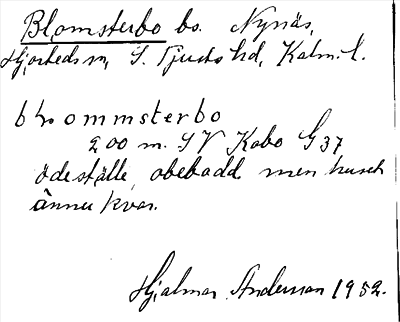 Blomsterbo bo. Nynäs,
Hjorteds sn, S. Tjusts hd, Kalm. l.
blommsterbo
200 m. SV Kabo G 37
ödeställe, obebodd men huset
ännu kvar.
Hjalmar Andersson 1952.